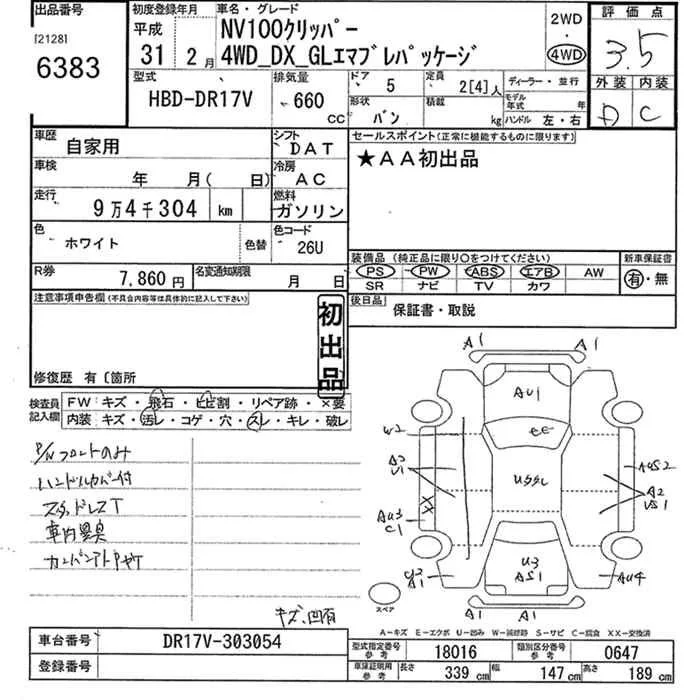 出品番号 初度登録年月 車名・グレード 2WD・4WD 評価点
[2128] 平成 NV100クリッパー 3.5
6383 31年 2月 4WD_DX_GLエマブレパッケージ 外装 内装
型式 HBD-DR17V 排気量 660 CC ドア 5 定員 2[4]人 ディーラー・並行 D C
形状 バン 積載 kg モデル年式 年 ハンドル 左・右
車歴 自家用 シフト DAT セールスポイント(正常に機能するものに限ります)
車検 年 月( 日) 冷房 AC ★AA初出品
走行 9万4千304 km 燃料 ガソリン
色 ホワイト 色替 色コード 26U 装備品 (純正品に限り○をつけてください) 新車保証書
PS PW ABS エアB AW 有・無
SR ナビ TV カワ
R券 7,860円 名変通知期限 月 日 後日品 保証書・取説
注意事項申告欄(不具合内容等は具体的に記入して下さい) 初出品
修復歴 有〔箇所
検査員記入欄 FW キズ・飛石・ヒビ割・リペア跡・×要
内装 キズ・汚レ・コゲ・穴・スレ・キレ・破レ
P/Wフロントのみ
ハンドルカバー付
スタッドレスT
車内異臭
カンバンアトヤケ
キズ、凹有
A1 A1
AU1
W2 EE
A2 U1 USSL AUS2
A2 US1
XX
AU3 C1
U3 AS1
A1 AU4
A1 A1
スペア
A-キズ E-エクボ U-凹み W-補修跡 S-サビ C-腐食 XX-交換済
車台番号 DR17V-303054 型式指定番号 参考 18016 類別区分番号 参考 0647
登録番号 車庫証明用 参考 長さ 339 cm 幅 147 cm 高さ 189 cm